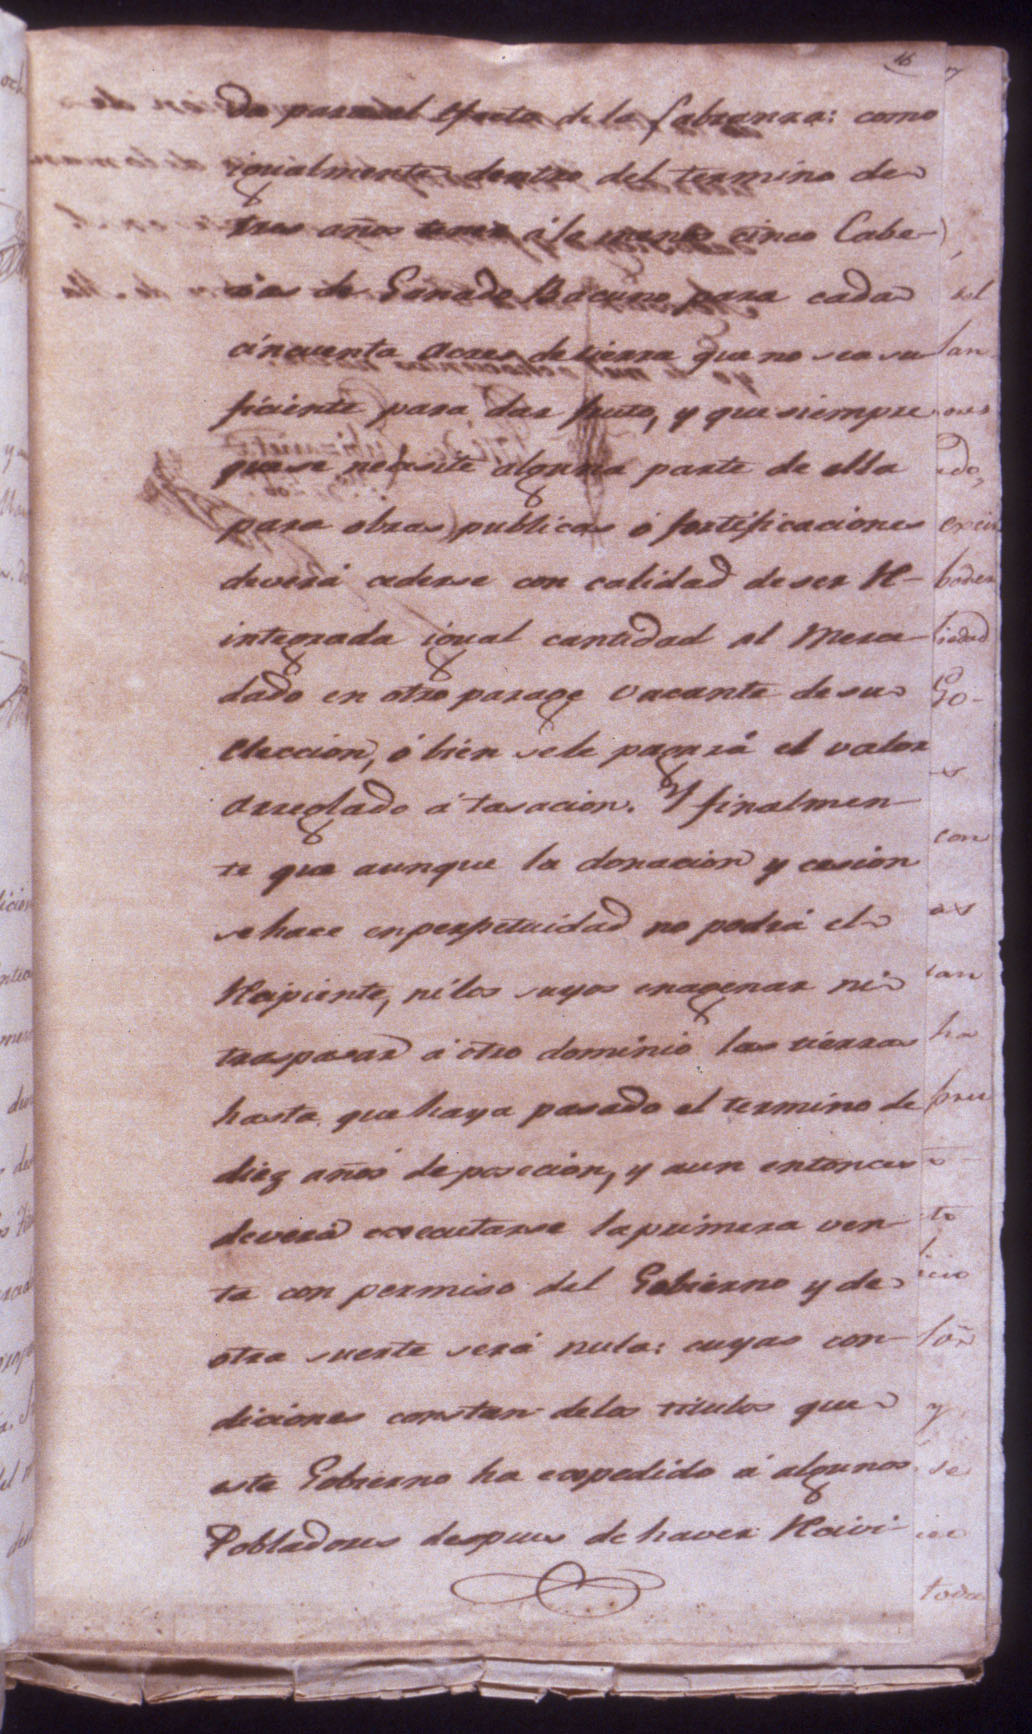 16
do para el efecto de la labranza: como
igualmente dentro del termino de
tres años tener á lo menos cinco Cabe-
sas de Ganado Bacuno para cada
cincuenta acres de tierra que no sea su
ficiente para dar fruto, y que siempre
que se necesite alguna parte de ella
para obras publicas ó fortificaciones
deverá cederse con calidad de ser Re-
integrada igual cantidad al Merce-
dado en otro parage vacante de su
eleccion, ó bien se le pagará el valor
arreglado á tasacion. Y finalmen-
te que aunque la donacion y cesion
se hace en perpetuidad no podrá el
Recipiente, ni los suyos enagenar ni
traspasar á otro dominio las tierras
hasta que haya pasado el termino de
diez años de posecion, y aun entonces
deverá executarse la primera ven-
ta con permiso del Gobierno y de
otra suerte será nula: cuyas con-
diciones constan de los titulos que
este Gobierno ha expedido á algunos
Pobladores despues de haver Recivi-